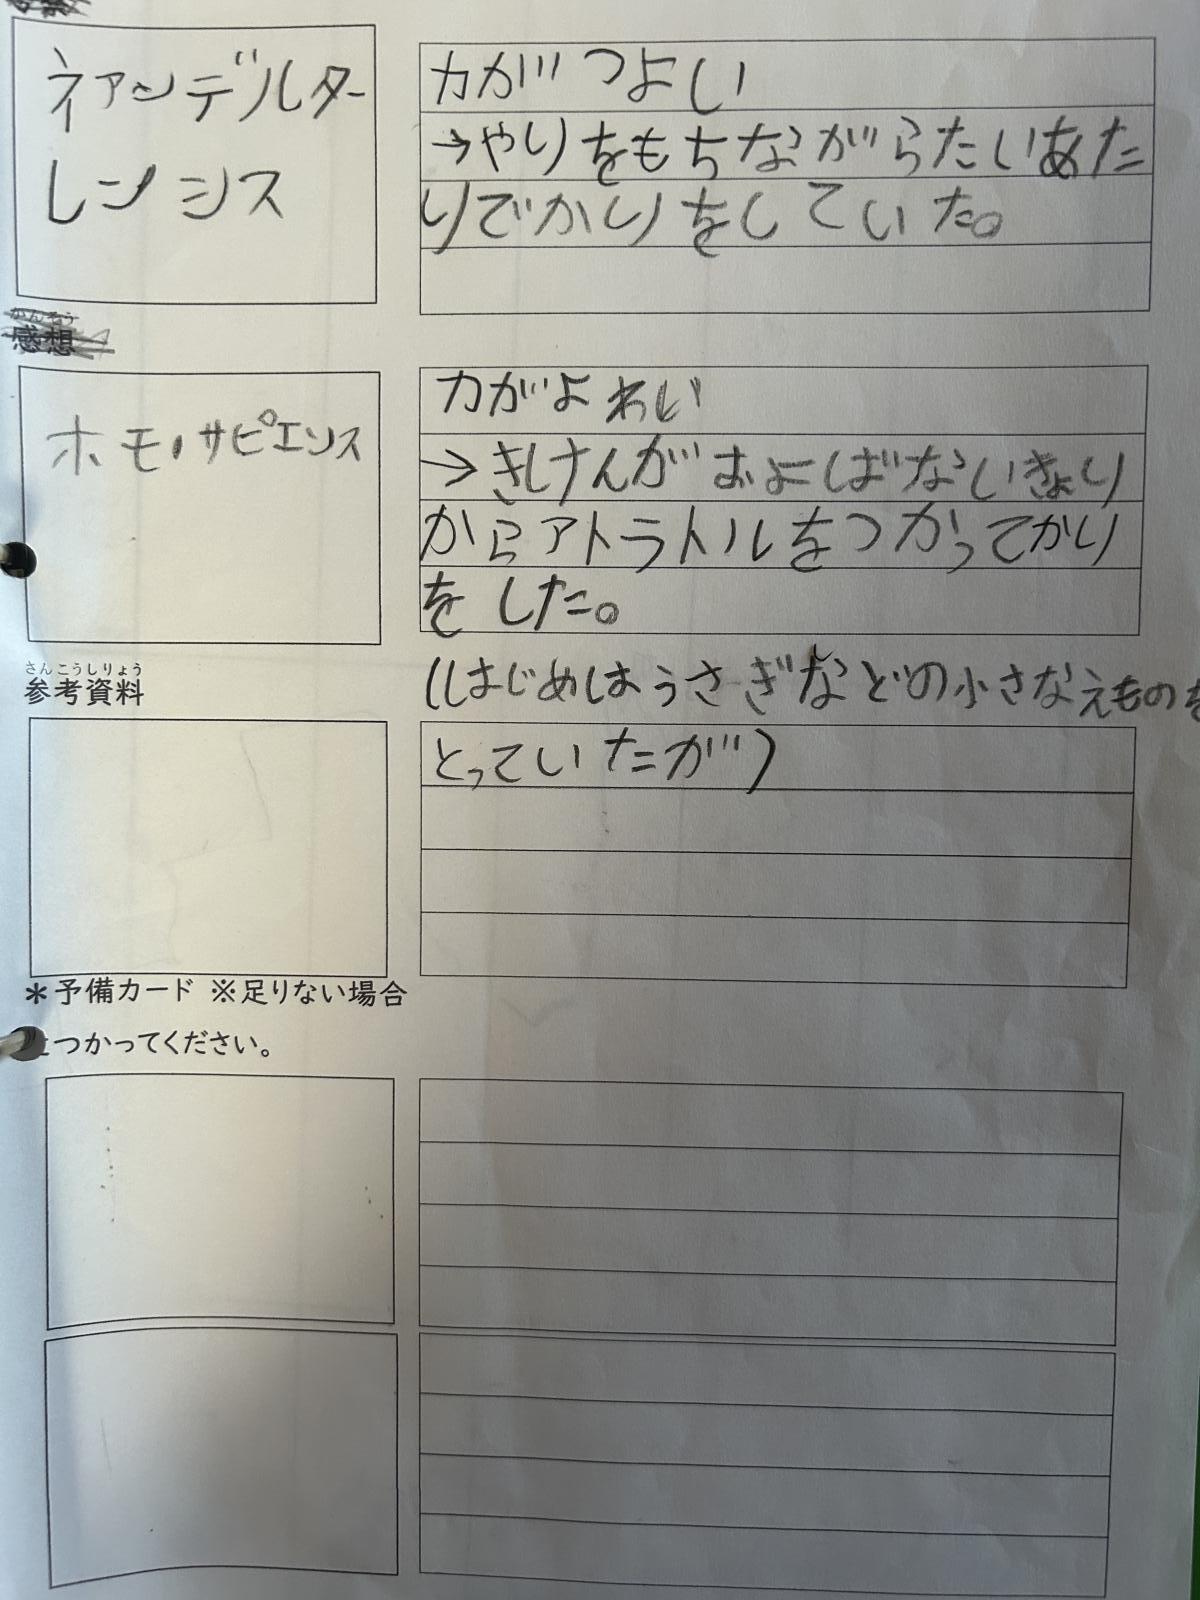 ネアンデルター
レンシス
力がつよい
→やりをもちながらたいあた
りでかりをしていた。
かんそう
感想
ホモ・サピエンス
力がよわい
→きけんがおよばないきょり
からアトラトルをつかってかり
をした。
さんこうしりょう
参考資料
(はじめはうさぎなどの小さなえものを
とっていたが)
*予備カード ※足りない場合
につかってください。